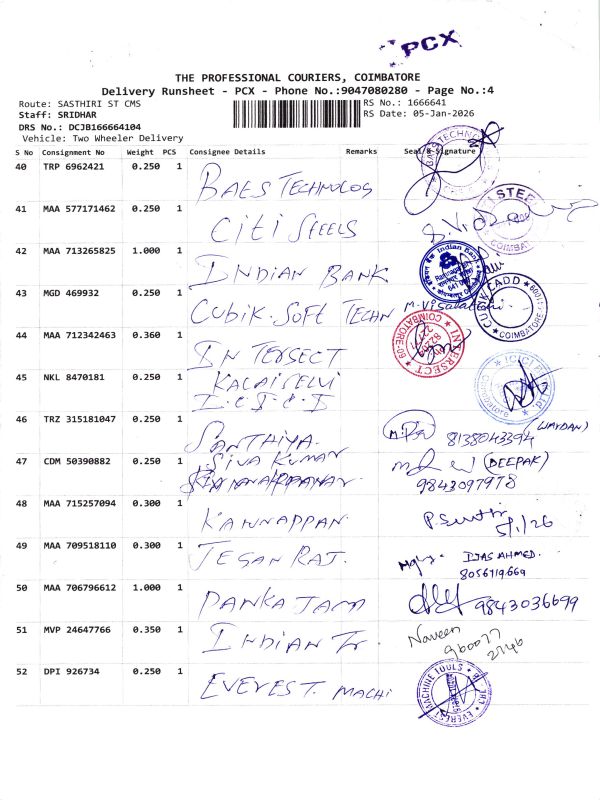 PCX
THE PROFESSIONAL COURIERS, COIMBATORE
Delivery Runsheet - PCX - Phone No.:9047080280 - Page No.:4
Route: SASTHIRI ST CMS
RS No.: 1666641
Staff: SRIDHAR
RS Date: 05-Jan-2026
DRS No.: DCJB166664104
Vehicle: Two Wheeler Delivery
S No Consignment No Weight PCS Consignee Details Remarks Seal/R-Signature
40 TRP 6962421 0.250 1 BAES TECHNOLOG
41 MAA 577171462 0.250 1 Citi Steels
COIMBAT
42 MAA 713265825 1.000 1 INDIAN BANK
Indian Bank
43 MGD 469932 0.250 1 Cubik.Soft TECHN
CUBIK CADD COIMBATORE
44 MAA 712342463 0.360 1 INTERSECT
INTERSECT COIMBATORE
45 NKL 8470181 0.250 1 KALAISELVI
I.C.I.C.I
46 TRZ 315181047 0.250 1 SANTHIYA.
8138043394
47 CDM 50390882 0.250 1 SIVA KUMAR
(DEEPAK)
9843097978
48 MAA 715257094 0.300 1 KANNAPPAN.
5/1/26
49 MAA 709518110 0.300 1 JEGAN RAJ.
IJAS AHMED.
8056719669
50 MAA 706796612 1.000 1 PANKAJAM
9843036699
51 MVP 24647766 0.350 1 INDIAN Tr.
Naveen
52 DPI 926734 0.250 1 EVEREST. MACHI
EVEREST MACHINE TOOLS